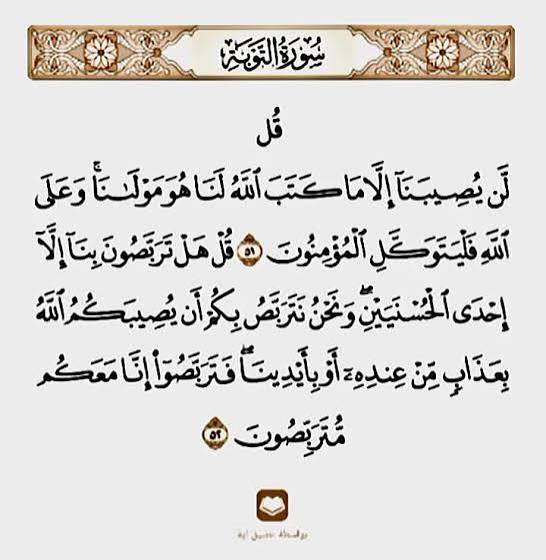 سُورَةُ التَّوْبَةِ
قُل
لَّن يُصِيبَنَآ إِلَّا مَا كَتَبَ ٱللَّهُ لَنَا هُوَ مَوْلَىٰنَا ۚ وَعَلَى
ٱللَّهِ فَلْيَتَوَكَّلِ ٱلْمُؤْمِنُونَ ٥١ قُلْ هَلْ تَرَبَّصُونَ بِنَآ إِلَّآ
إِحْدَى ٱلْحُسْنَيَيْنِ ۖ وَنَحْنُ نَتَرَبَّصُ بِكُمْ أَن يُصِيبَكُمُ ٱللَّهُ
بِعَذَابٍ مِّنْ عِندِهِۦٓ أَوْ بِأَيْدِينَا ۖ فَتَرَبَّصُوٓا۟ إِنَّا مَعَكُم
مُّتَرَبِّصُونَ ٥٢
بواسطة تطبيق آية